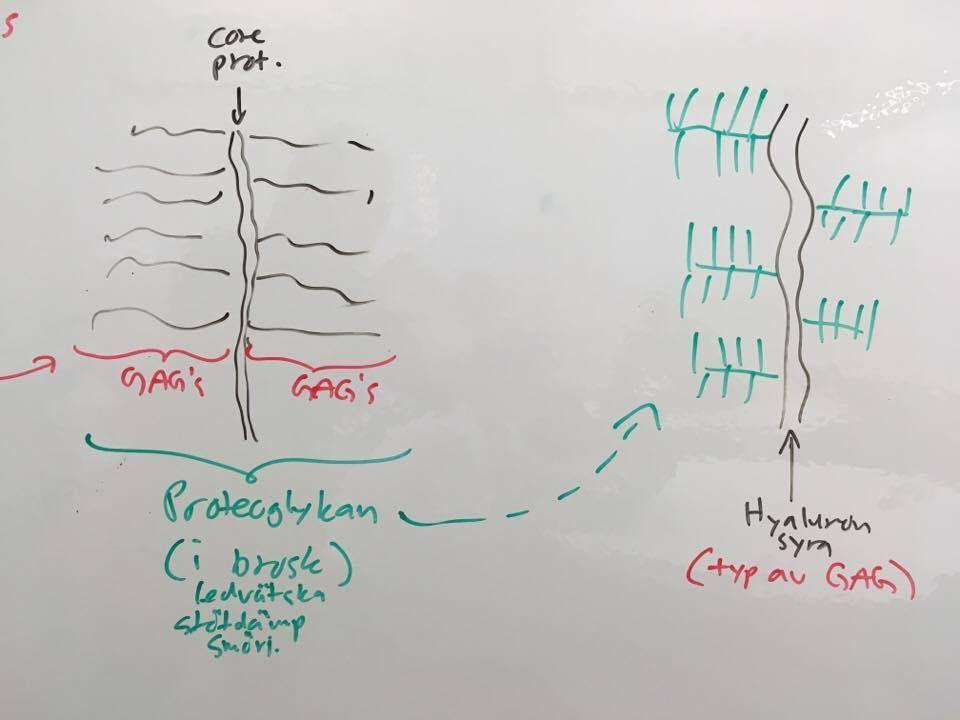 s
Core
prot.
GAG's
GAG's
Proteoglykan
(i brosk)
Ledvätska
stötdämp
smörj.
Hyaluron
syra
(typ av GAG)